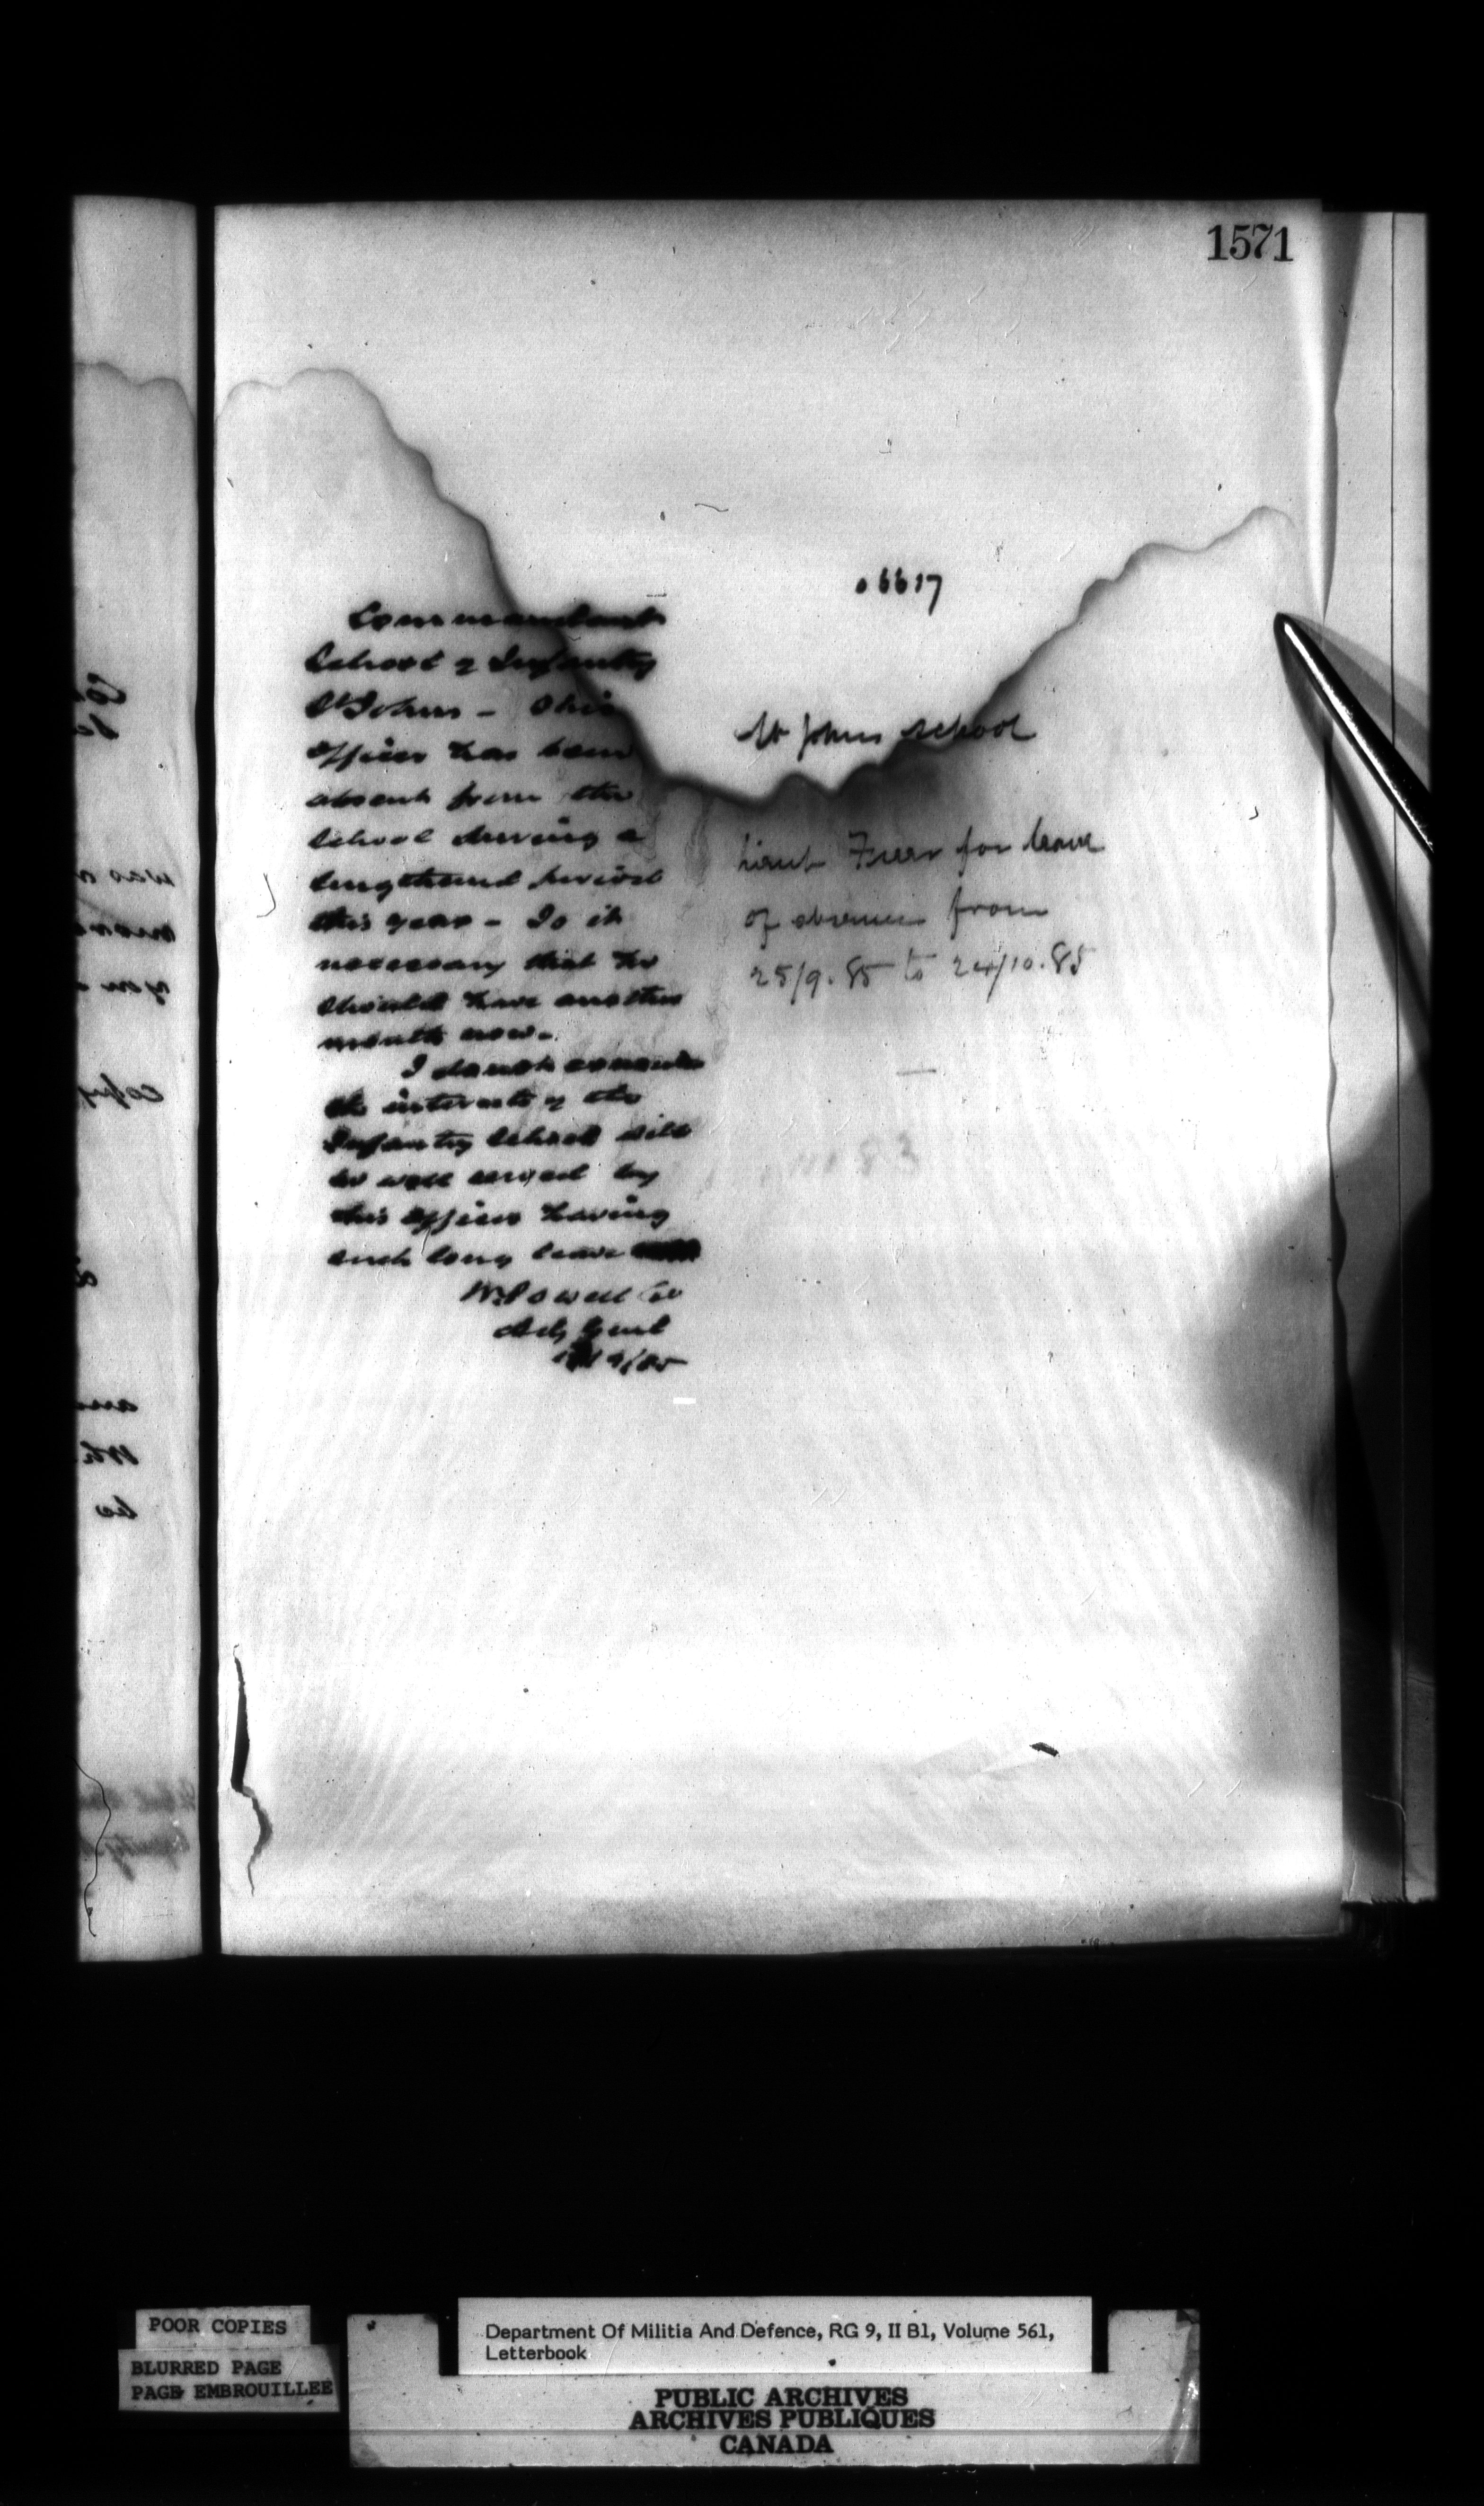 1571
06617
Commandant
School of Infantry
St Johns - This
officer has been
absent from the
School during a
lengthened period
this year - Is it
necessary that he
should have another
month now -
I do not consider
the interests of the
Infantry School will
be well served by
this officer having
such long leave
W Powell Col
Adj Genl
9/85
St Johns School
Lieut Freer for leave
of absence from
25/9.85 to 24/10.85
POOR COPIES
BLURRED PAGE
PAGE EMBROUILLEE
Department Of Militia And Defence, RG 9, II B1, Volume 561,
Letterbook
PUBLIC ARCHIVES
ARCHIVES PUBLIQUES
CANADA